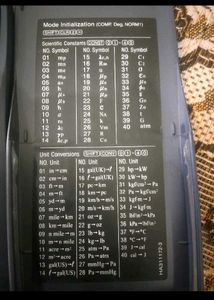 Mode Initialization (COMP, Deg, NORM1)
SHIFT CLR 2 =
Scientific Constants CONST 0 1 - 4 0
NO. Symbol NO. Symbol NO. Symbol
01 mp 15 λc,n 29 C1
02 mn 16 R∞ 30 C2
03 me 17 u 31 σ
04 mμ 18 μp 32 ε0
05 a0 19 μe 33 μ0
06 h 20 μn 34 φ0
07 μN 21 μμ 35 g
08 μB 22 F 36 G0
09 ħ 23 e 37 Z0
10 α 24 NA 38 t
11 re 25 k 39 G
12 λc 26 Vm 40 atm
13 γp 27 R
14 λc,p 28 C0
Unit Conversions SHIFT CONV 0 1 - 4 0
NO. Unit NO. Unit NO. Unit
01 in→cm 15 gal(UK)→ℓ 29 hp→kW
02 cm→in 16 ℓ→gal(UK) 30 kW→hp
03 ft→m 17 pc→km 31 kgf/cm²→Pa
04 m→ft 18 km→pc 32 Pa→kgf/cm²
05 yd→m 19 km/h→m/s 33 kgf·m→J
06 m→yd 20 m/s→km/h 34 J→kgf·m
07 mile→km 21 oz→g 35 lbf/in²→kPa
08 km→mile 22 g→oz 36 kPa→lbf/in²
09 n mile→m 23 lb→kg 37 °F→°C
10 m→n mile 24 kg→lb 38 °C→°F
11 acre→m² 25 atm→Pa 39 J→cal
12 m²→acre 26 Pa→atm 40 cal→J
13 gal(US)→ℓ 27 mmHg→Pa
14 ℓ→gal(US) 28 Pa→mmHg
HA311172-3